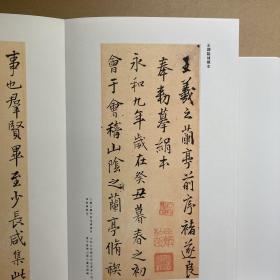 王羲之蘭亭前序褚遂良
奉勅摹絹本
永和九年歲在癸丑暮春之初
會于會稽山陰之蘭亭脩禊
事也羣賢畢至少長咸集此